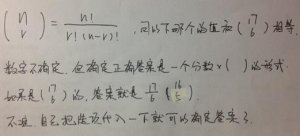 (n r) = n! / r!(n-r)! , 问以下哪个的值和 (17 6) 相等.
数字不确定, 但确定正确答案是一个分数 × ( ) 的形式.
如果是 (17 6) 的, 答案就是 17/6 (16 5)
不难, 自己把选项代入一下就可以确定答案了.